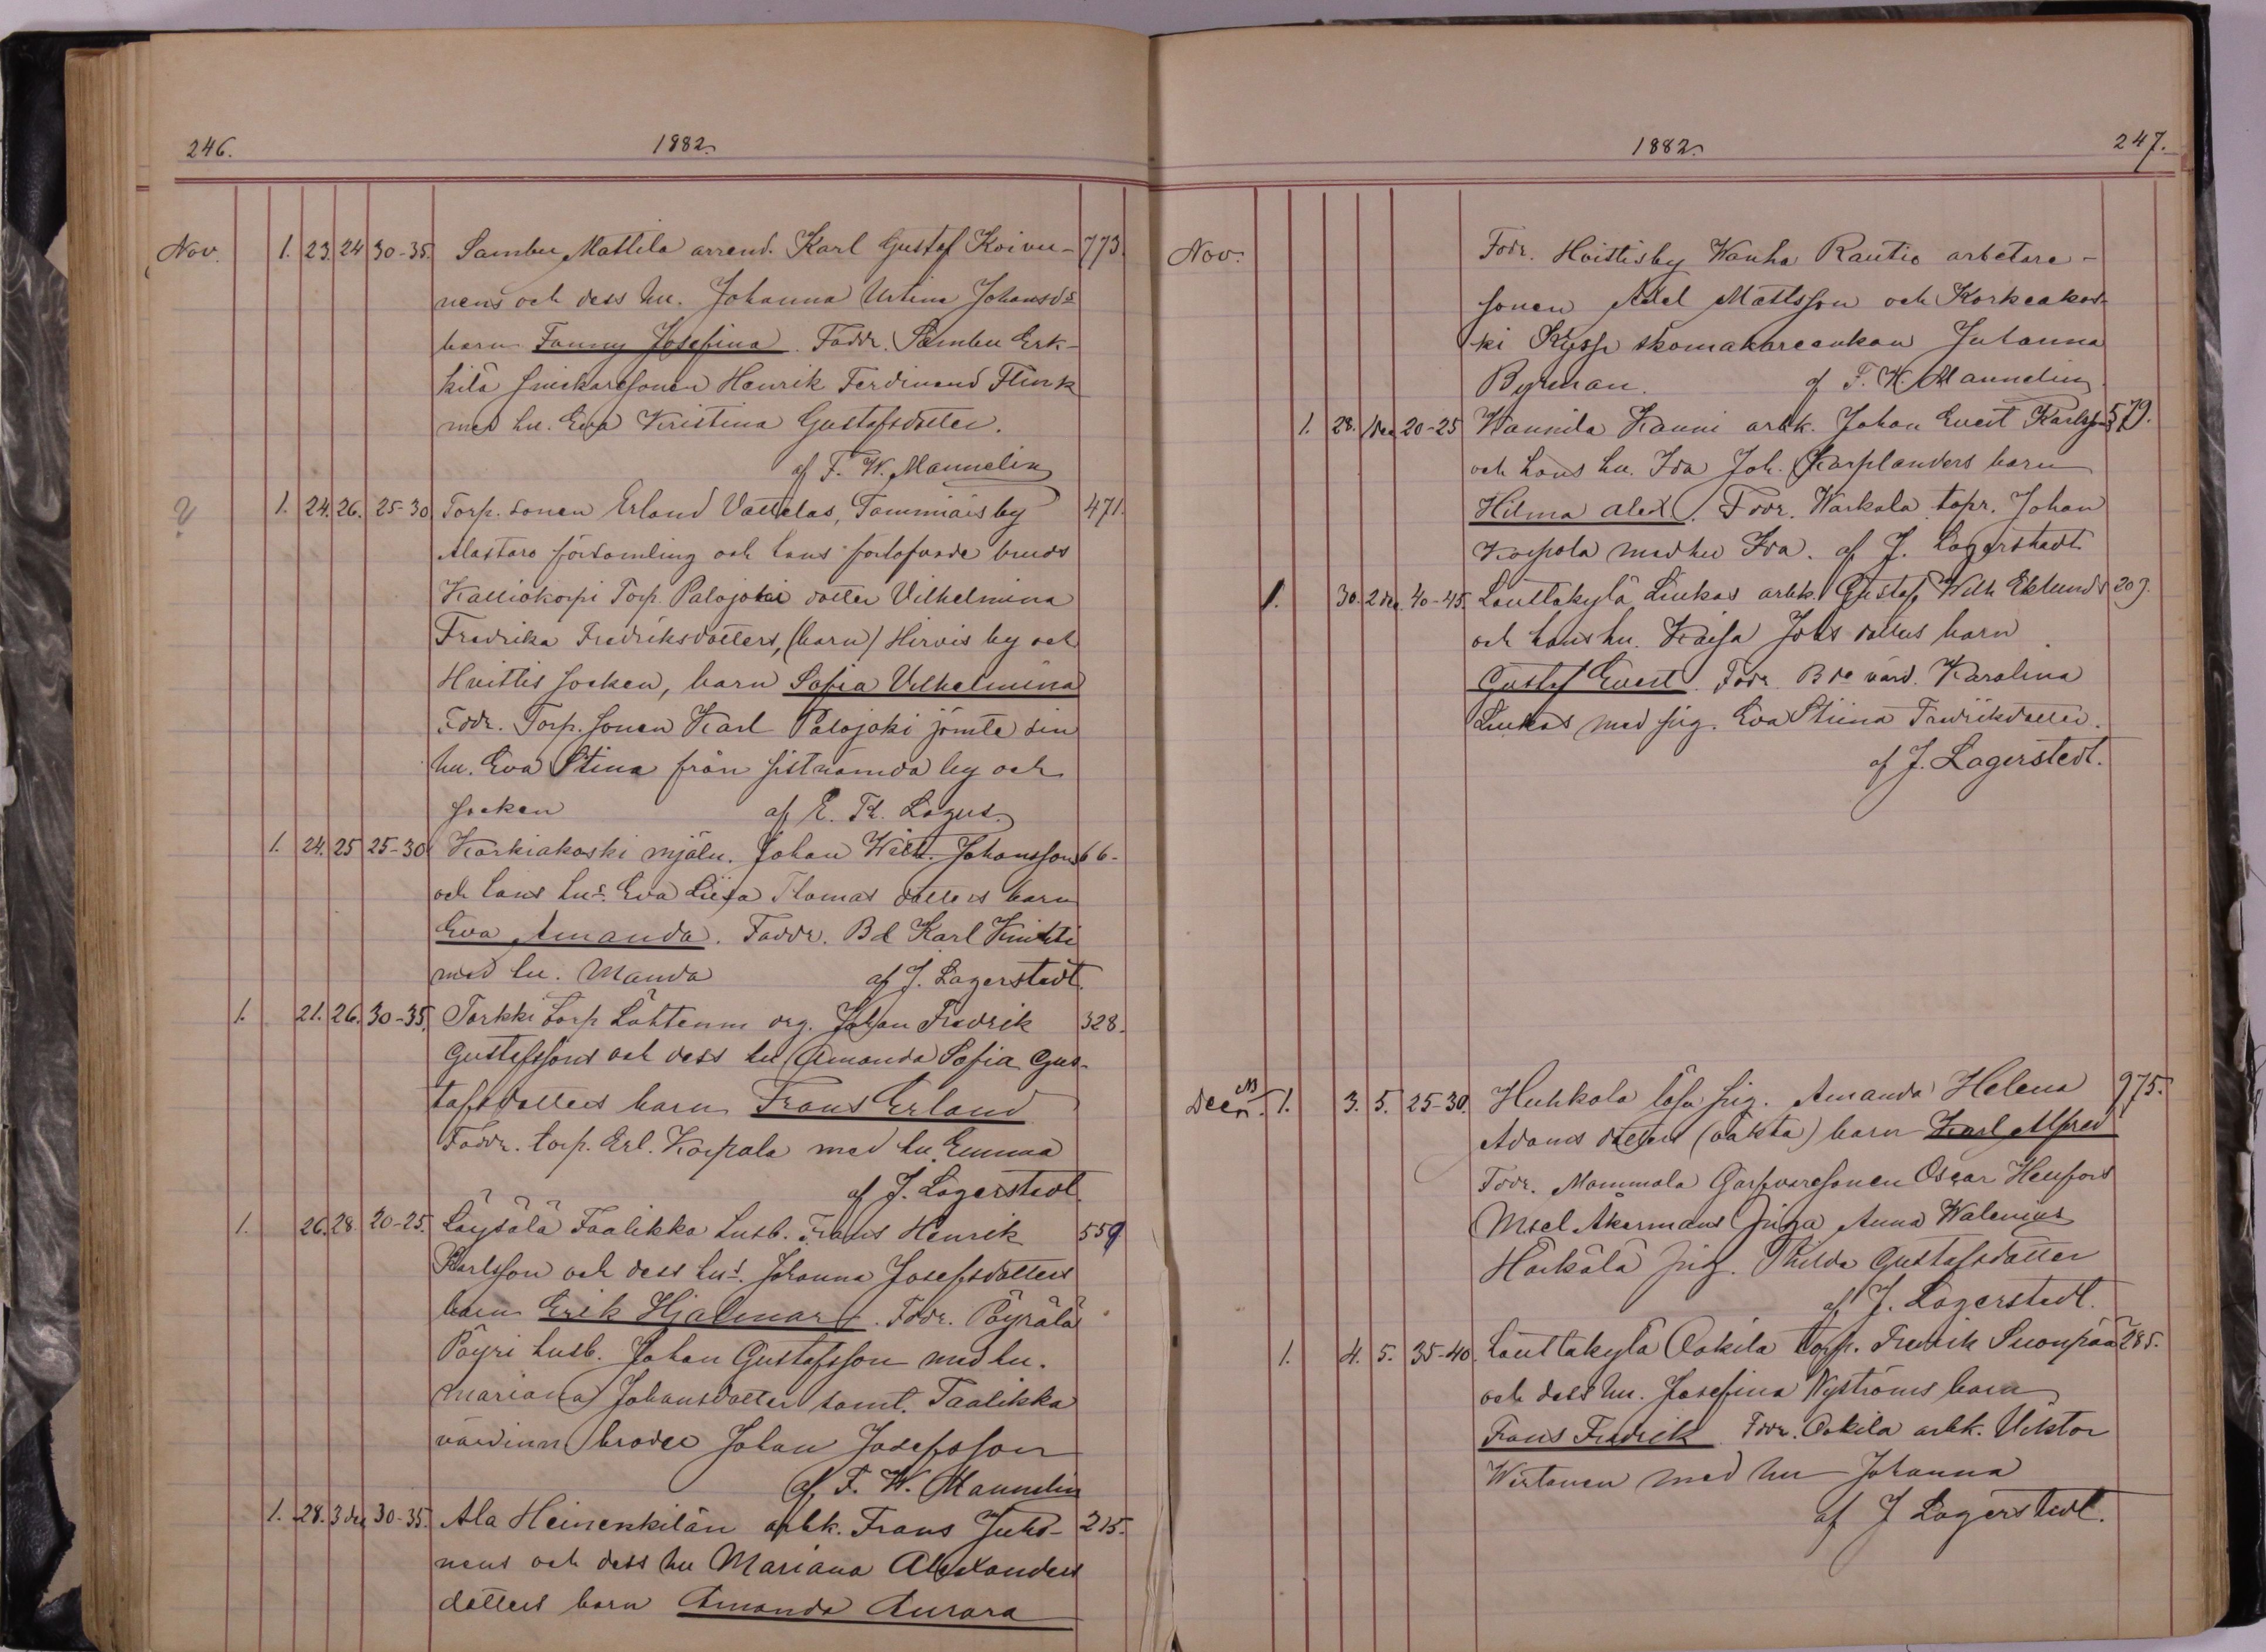 246.
1882.
Nov. 1. 23. 24 30-35. Sambu Mattila arrend. Karl Gustaf Koivu- 773.
nens och dess hu. Johanna Ustina Johansds
barn Fanny Josefina. Faddr. Sambu Erk-
kilä snickaresonen Henrik Ferdinand Flink
med hu. Eva Kristina Gustafsdotter.
af F. W. Mannelin
? 1. 24. 26. 25-30 Torp. sonen Erland Vattelas, Tammiais by 471.
Alastaro församling och hans förlofvade bruds
Kalliokorpi Torp. Palojoki dotter Vilhelmina
Fredrika Fredriksdotters, (barn) Hirvis by och
Hvittis socken, barn Sofia Vilhelmina
Fddr. Torp. sonen Karl Palojoki jämte sin
hu. Eva Stina från sistnämda by och
socken af E. Th. Lagus.
1. 24. 25 25-30 Korkiakoski mjöln. Johan Wilh. Johansson 66.
och hans hus. Eva Liisa Thomas dotters barn
Eva Amanda. Faddr. Bd Karl Knihti
med hu. Manda af J. Lagerstedt.
1. 21. 26. 30-35. Torkki torp Lähteenm drg. Johan Fredrik 328.
Gustafssons och dess hu Amanda Sofia Gus-
tafsdotters barn Frans Erland
Faddr. torp. Erl. Korpala med hu. Emma
af J. Lagerstedt.
1. 26. 28. 20-25. Löysälä Taalikka husb. Frans Henrik 559
Karlsson och dess hus. Johanna Josefsdotters
barn Erik Hjalmar. Fddr. Pöyrälä
Pöyri husb. Johan Gustafsson med hu.
Mariana Johansdotter samt Taalikka
värdinn broder Johan Josefsson
af F. W. Mannelin
1. 28. 3 dec 30-35. Ala Heinenkilän arbk. Frans Juho- 215.
nens och dess hu Mariana Alexanders
dotters barn Amanda Aurora
1882.
247.
Nov. Fddr. Hvittisby Wanha Rautio arbetare-
sonen Axel Mattsson och Korkeakos-
ki Kyssä skomakareenkan Johanna
Byrman. af F. W. Mannelin.
1. 28. 1 dec 20-25 Wannila Hanni arbk. Johan Evert Karlsson 579.
och hans hu. Ida Joh. Karplanders barn
Hilma Alex. Fddr. Warkala topr. Johan
Korpola med hu Ida. af J. Lagerstedt
1. 30. 2 dec. 40-45. Lauttakylä Liukas arbk. Gustaf Wilh Eklunds 209.
och hans hu. Kaisa Johs dotters barn
Gustaf Evert. Fddr. Bde värd. Karolina
Liukas med pig. Eva Stiina Fredriksdotter.
af J. Lagerstedt.
Decem. 1. 3. 5. 25-30. Huhkola lösa pig. Amanda Helena 975.
Adams dotters (oäkta) barn Karl Alfred
Fddr. Mommola Garfvaresonen Oscar Henfors
Msel Åkermans piga Anna Walenius
Härkälä pig. Thilda Gustafsdotter
af J. Lagerstedt.
1. 4. 5. 35-40. Lauttakylä Oakila torp. Fredrik Suonpää 285.
och dess hu. Josefina Nyströms barn
Frans Fredrik Fddr. Oakila arbk. Viktor
Wirtanen med hu Johanna
af J Lagerstedt.